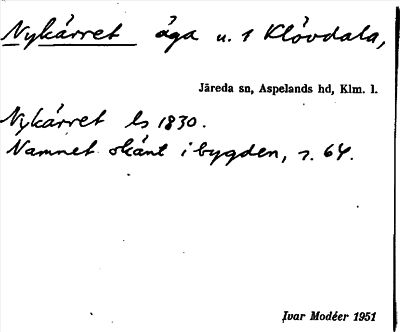 Nykärret äga u. 1 Klövdala,
Järeda sn, Aspelands hd, Klm. l.
Nykärret ls 1830.
Namnet okänt i bygden, s. 64.
Ivar Modéer 1951